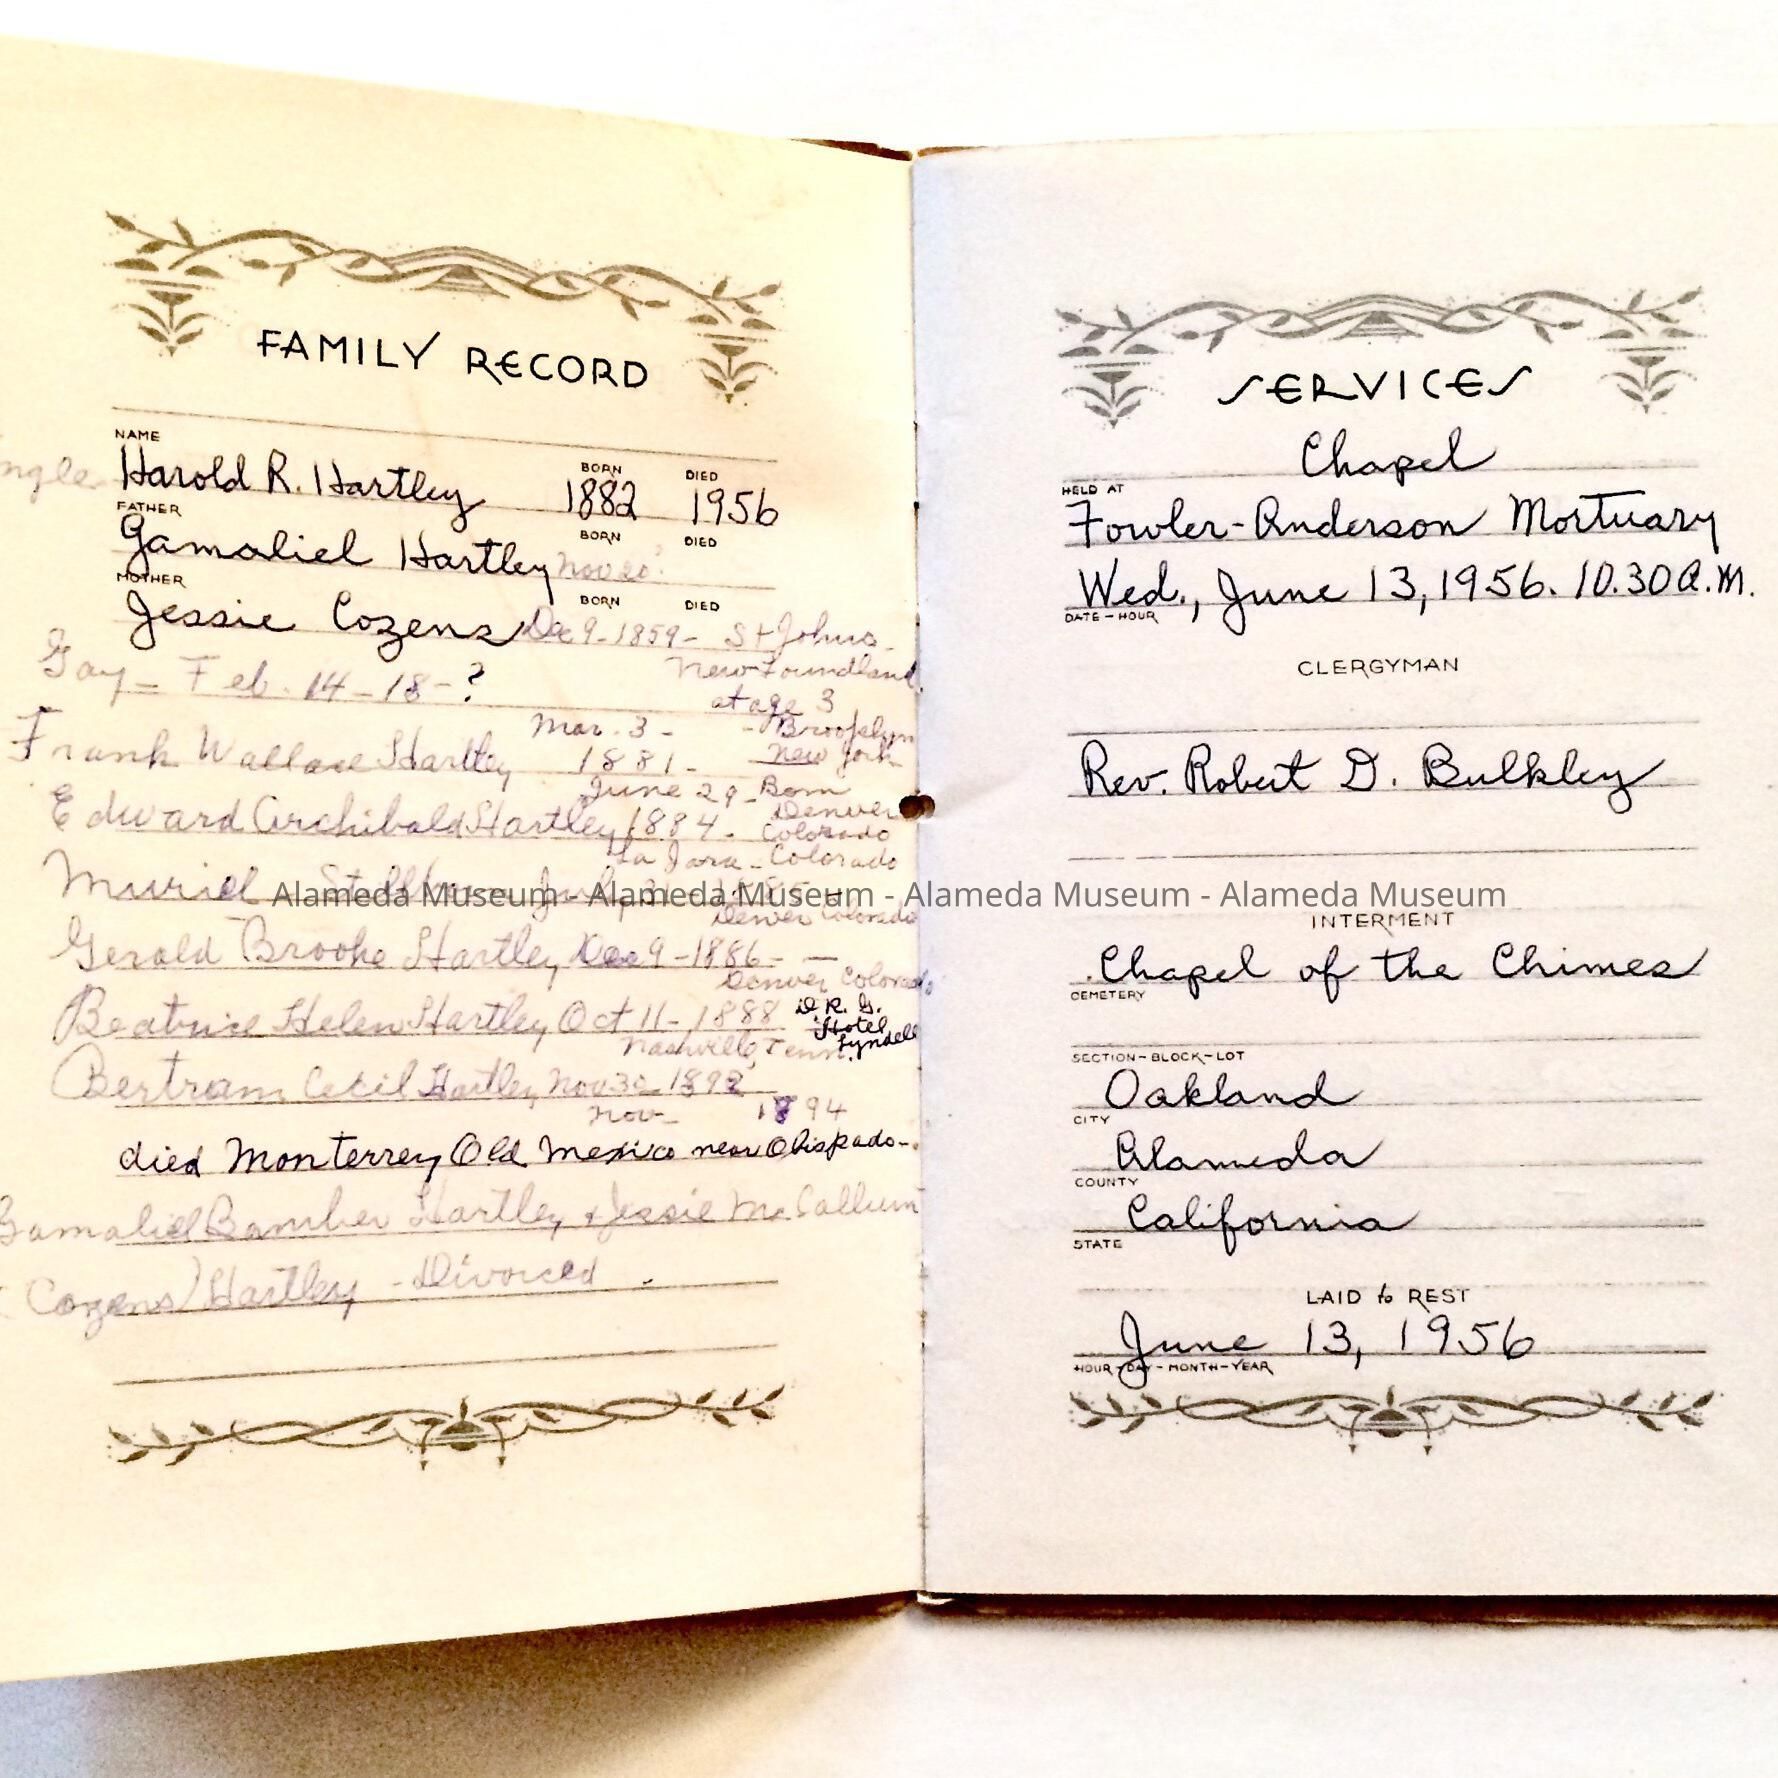 FAMILY RECORD
NAME
Harold R. Hartley
BORN
1882
DIED
1956
FATHER
Gamaliel Hartley
BORN
Nov 20
DIED
MOTHER
Jessie Cozens
BORN
Dec 9-1859- St Johns
DIED
New Foundland
Gay - Feb. 14-18-?
at age 3
Mar. 3 - - Brooklyn
Frank Wallace Hartley 1881- New York
June 29- Born
Denver
Edward Archibald Hartley 1884- Colorado
La Jara - Colorado
Muriel
Denver Colorado
Gerald Brooke Hartley Dec 9-1886-
Denver Colorado
Beatrice Helen Hartley Oct 11-1888 D.R.G.
Hotel
Lyndell
Nashville, Tenn.
Bertram Cecil Hartley Nov 30-1892
Nov- 1894
died Monterrey Old Mexico near Obispado-
Gamaliel Bamber Hartley & Jessie McCallum
(Cozens) Hartley - Divorced.
SERVICES
Chapel
HELD AT
Fowler-Anderson Mortuary
Wed., June 13, 1956. 10.30 A.M.
DATE-HOUR
CLERGYMAN
Rev. Robert D. Bulkley
Alameda Museum - Alameda Museum - Alameda Museum - Alameda Museum
INTERMENT
Chapel of the Chimes
CEMETERY
SECTION-BLOCK-LOT
Oakland
CITY
Alameda
COUNTY
California
STATE
LAID to REST
June 13, 1956
HOUR-DAY-MONTH-YEAR